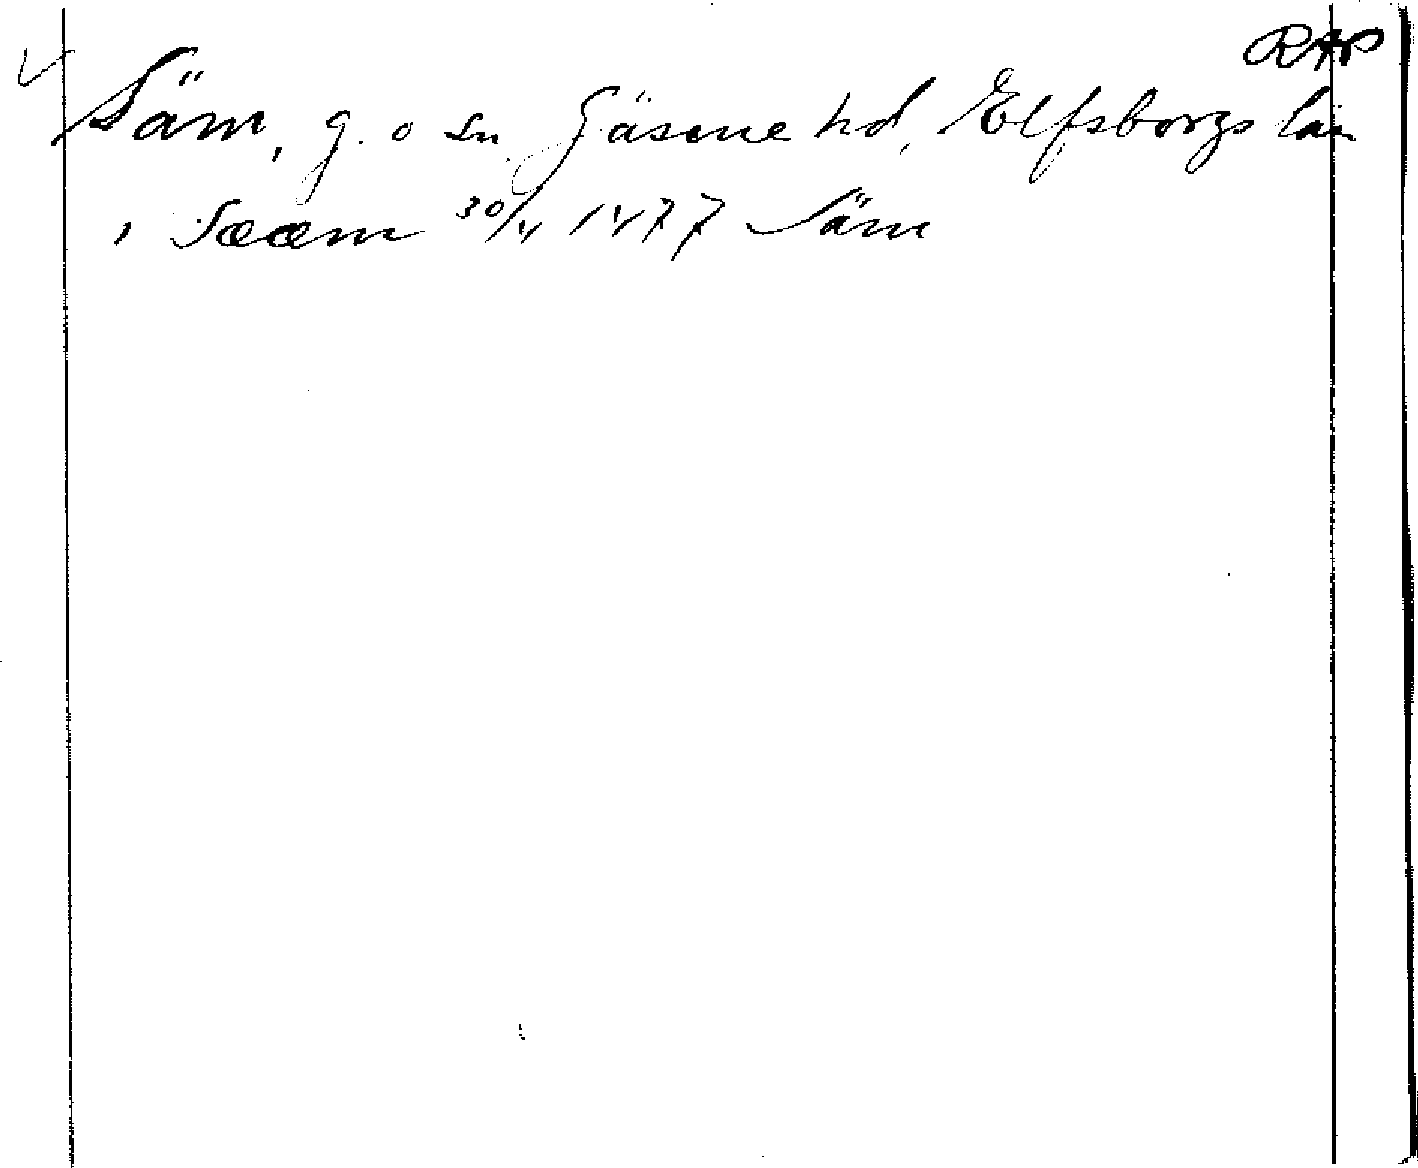 RAP
Säm, g. o sn. Gäsene hd, Elfsborgs län
, Sææm 30/4 1477 Säm